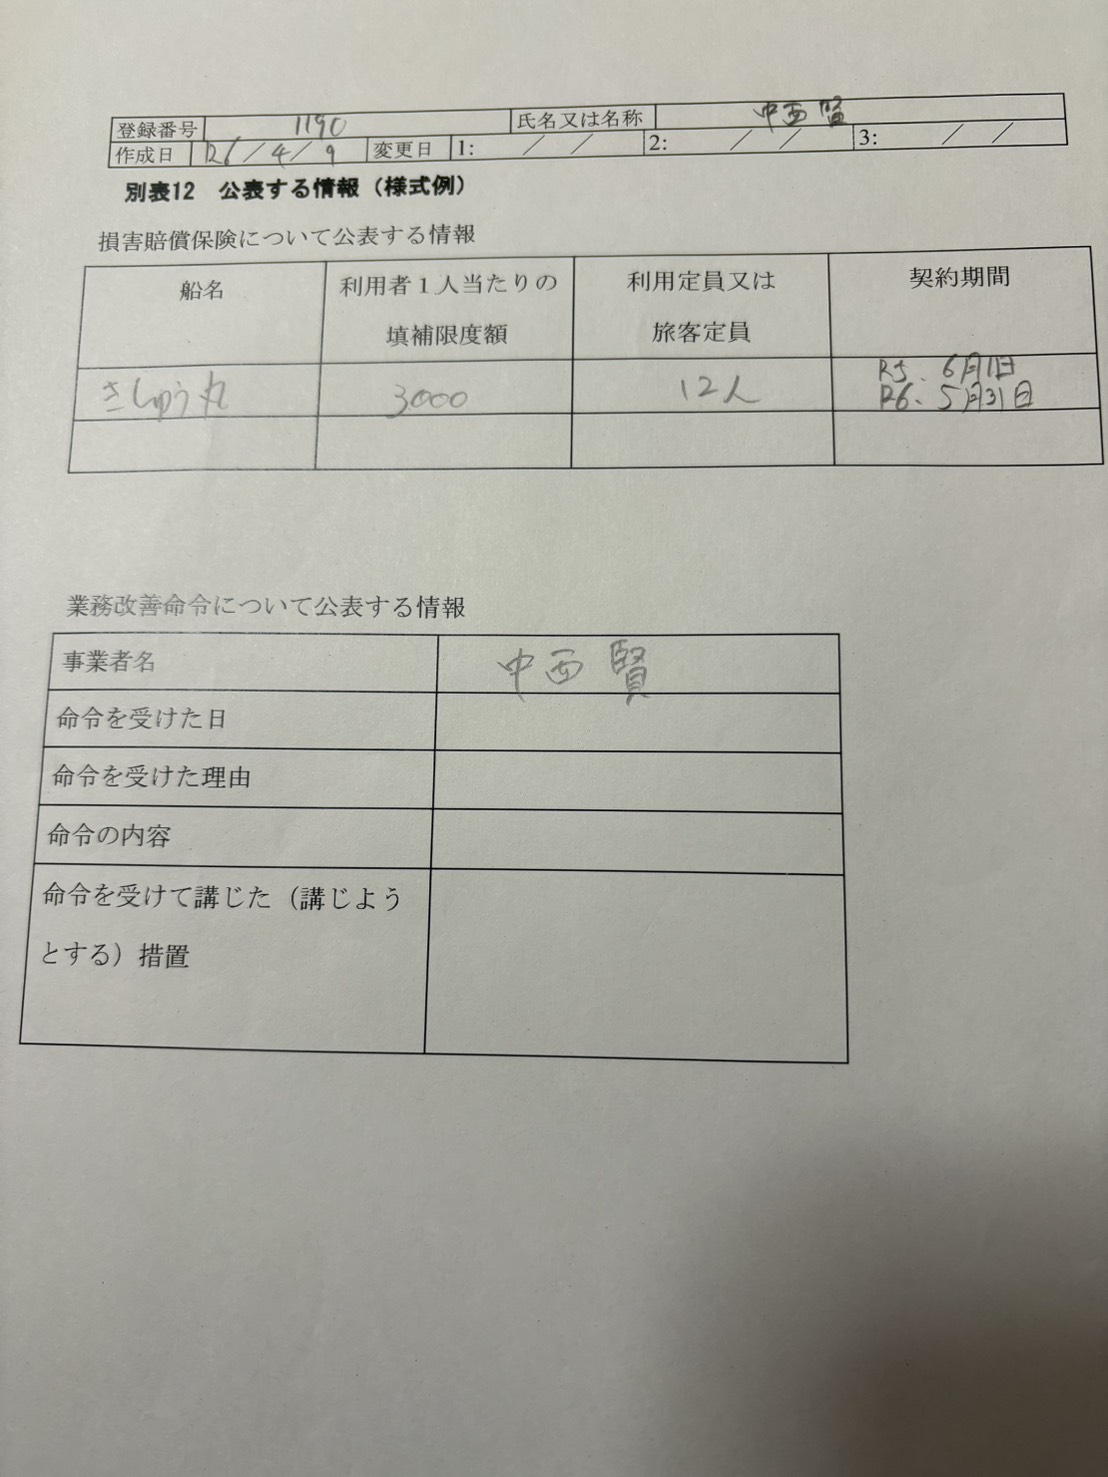 登録番号 1190 氏名又は名称 中西 賢
作成日 R6/4/9 変更日 1: / / 2: / / 3: / /
別表12 公表する情報(様式例)
損害賠償保険について公表する情報
船名 利用者1人当たりの填補限度額 利用定員又は旅客定員 契約期間
きしゅう丸 3000 12人 R5、6月1日
R6、5月31日
業務改善命令について公表する情報
事業者名 中西 賢
命令を受けた日
命令を受けた理由
命令の内容
命令を受けて講じた(講じよう
とする)措置